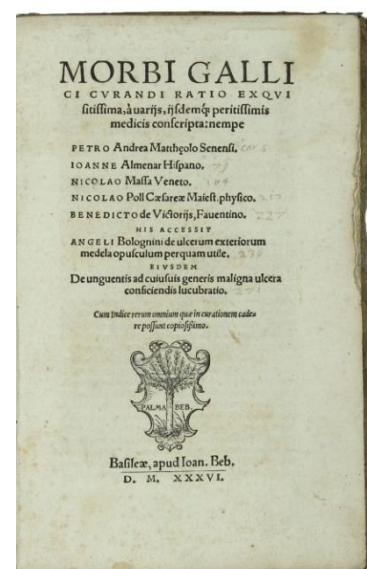 MORBI GALLI
CI CVRANDI RATIO EXQVI
sitissima, à uarijs, ijsdemq́; peritissimis
medicis conscripta: nempe
PETRO Andrea Mattheolo Senensi.
IOANNE Almenar Hispano.
NICOLAO Massa Veneto.
NICOLAO Poll Cæsareæ Maiest. physico.
BENEDICTO de Victorijs, Fauentino.
HIS ACCESSIT
ANGELI Bolognini de ulcerum exteriorum
medela opusculum perquam utile.
EIVSDEM
De unguentis ad cuiusuis generis maligna ulcera
conficiendis lucubratio.
Cum Indice rerum omnium quæ in curationem cade-
re possunt copiosissimo.
PALMA BEB.
Basileæ, apud Ioan. Beb.
D. M. XXXVI.